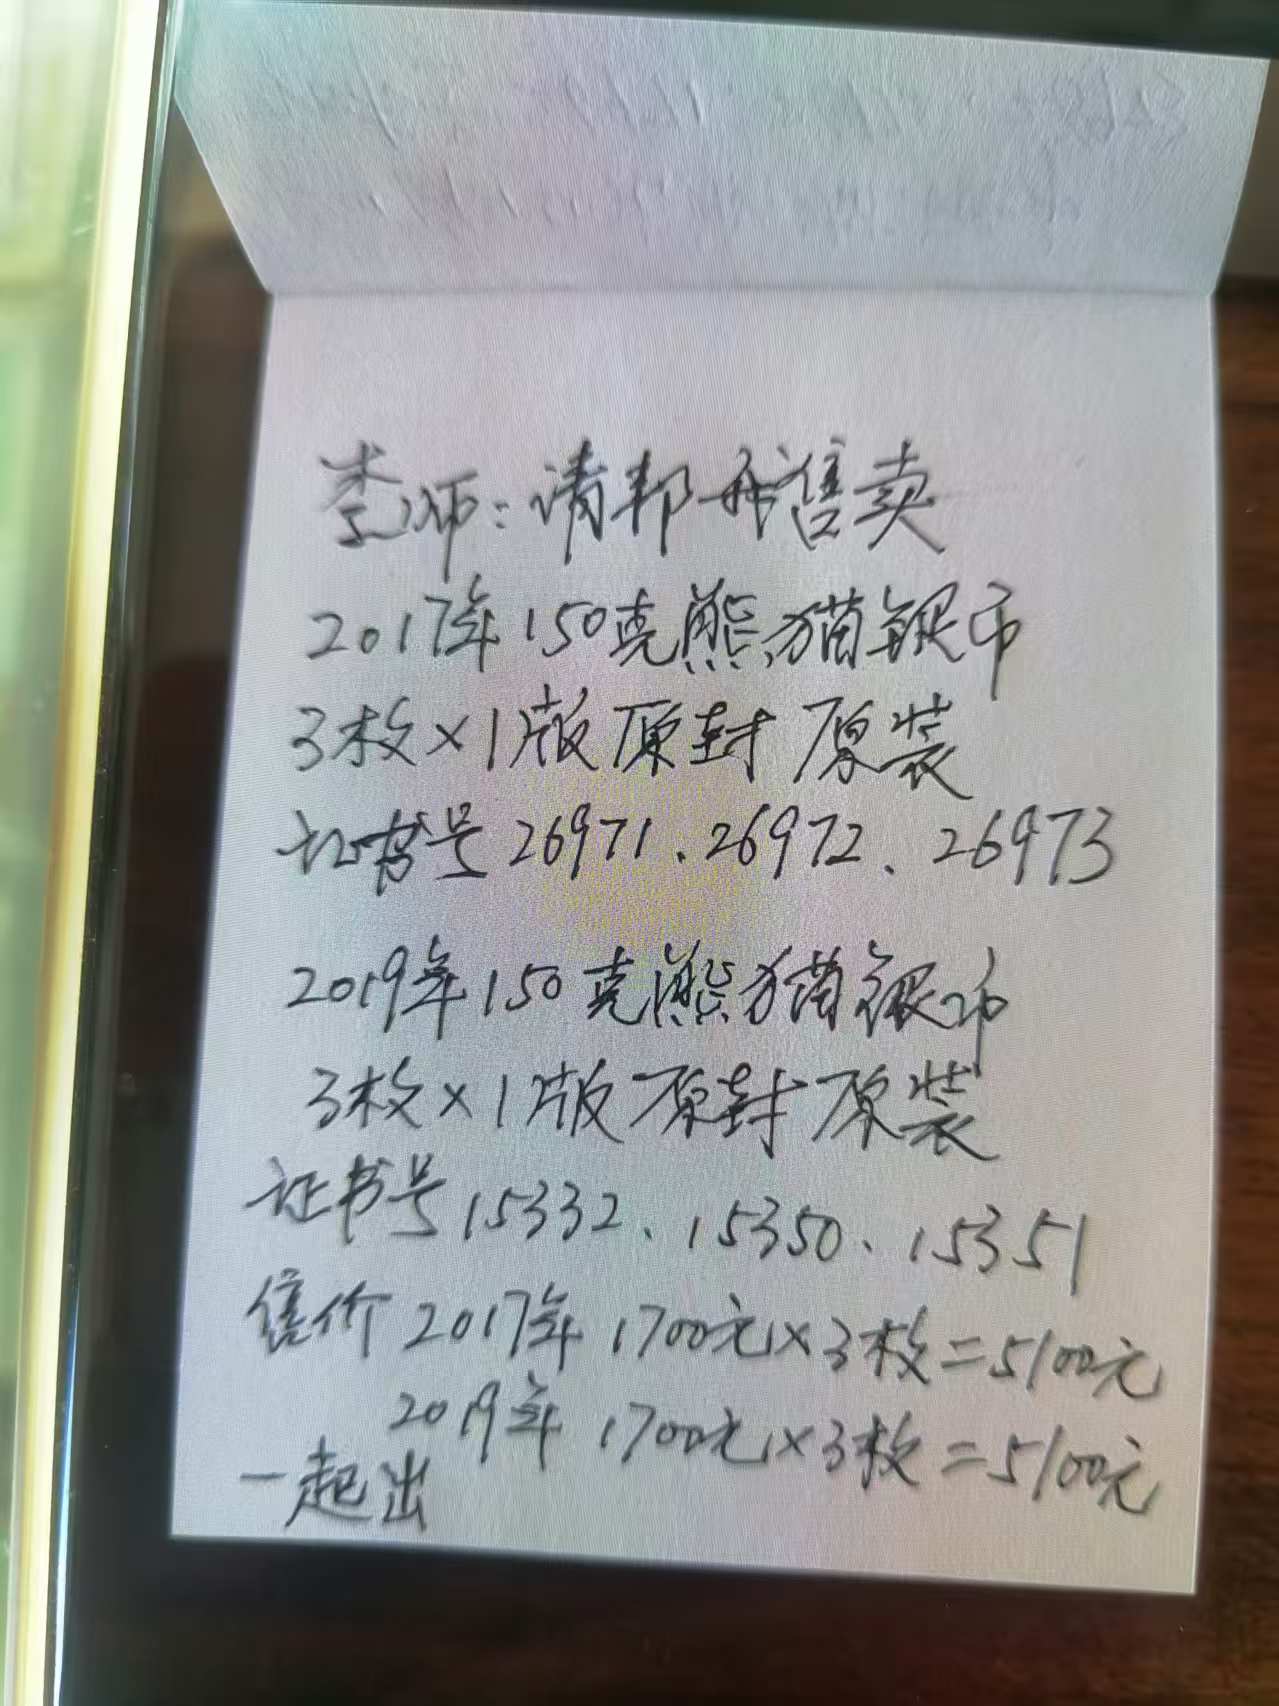 李师：请邦我售卖
2017年150克熊猫银币
3枚×1版原封原装
证书号26971、26972、26973
2019年150克熊猫银币
3枚×1版原封原装
证书号15332、15350、15351
售价2017年1700元×3枚=5100元
2019年1700元×3枚=5100元
一起出